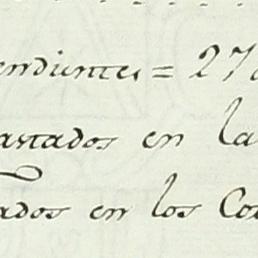 endientes = 27
astados en la
ados en los Co